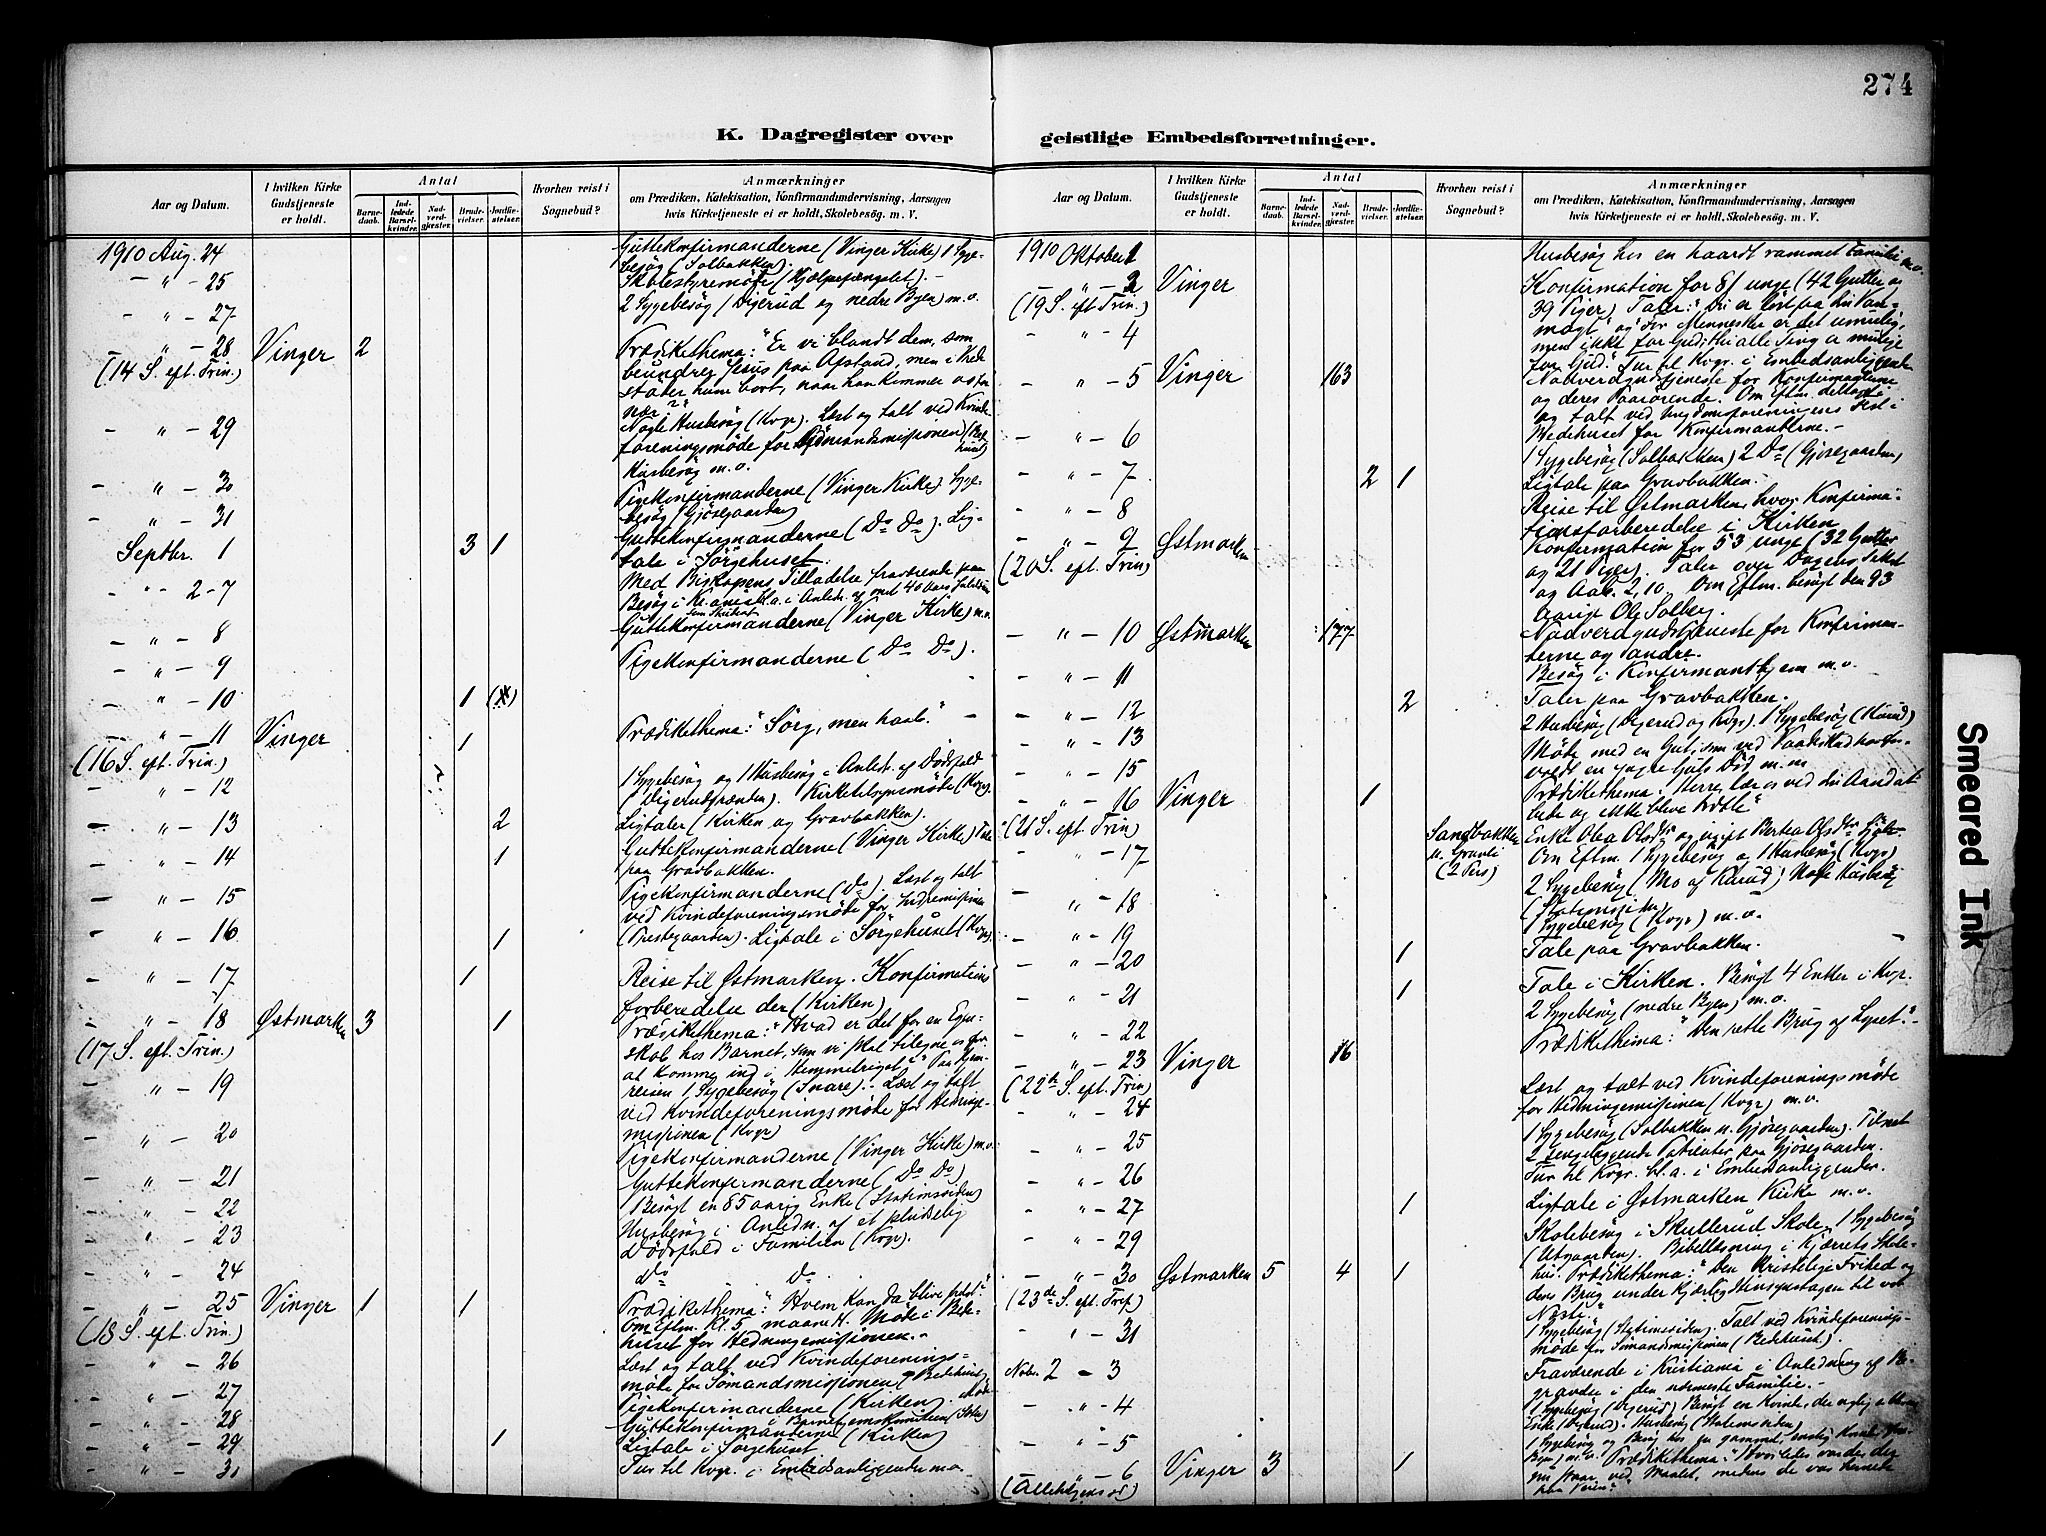 274
K. Dagregister over geistlige Embedsforretninger.
Aar og Datum.
I hvilken Kirke Gudstjeneste er holdt.
Antal
Barnedaab.
Indledede Barselkvinder.
Nadverdgjæster.
Brudevielser.
Jordfæstelser.
Hvorhen reist i Sognebud?
Anmærkninger
om Prædiken, Katekisation, Konfirmandundervisning, Aarsagen
hvis Kirketjeneste ei er holdt, Skolebesøg. m. V.
1910 Aug. 24 Guttekonfirmanderne (Vinger Kirke) 1 Syge-
besøg (Solbakken).
- " - 25 Skolestyremøde (Hjælpefængslet). -
- " - 27 2 Sygebesøg (Digerud og nedre Byen) m. v.
- " - 28 Vinger 2 Prædikethema: "Er vi blandt dem, som
(14 S. eft. Trin.) beundrer Jesus paa Afstand, men
støder ham bort, naar han kommer os for
nær?"
- " - 29 Nogle Husbesøg (Kvgr). Læst og talt ved Kvinde-
foreningsmøde for Sømandsmissionen (Bed-
huset)
- " - 30 Husbesøg m. v.
- " - 31 Pigekonfirmanderne (Vinger Kirke) Syge-
besøg (Gjøsegaarden)
Septbr. 1 3 1 Guttekonfirmanderne (Do Do). Lig-
tale i Sørgehuset.
- " - 2-7 Med Biskopens Tilladelse fraværende paa
Besøg i Kr.ania bl. a. i Anledn. af mit 40 Aars Jubilæum
som Student
- " - 8 Guttekonfirmanderne (Vinger Kirke) m. v.
- " - 9 Pigekonfirmanderne (Do Do).
- " - 10 1
- " - 11 Vinger 1 Prædikethema: "Sørg, men haab." -
(16 S. eft. Trin.)
- " - 12 1 Sygebesøg og 1 Husbesøg i Anledn. af Dødsfald
(Digerudgrænden). Kirketilsynsmøde (Kvgr).
- " - 13 2 Ligtaler (Kirken og Gravbakken).
- " - 14 1 Guttekonfirmanderne (Vinger Kirke) Tale
paa Gravbakken.
- " - 15 Pigekonfirmanderne (Do). Læst og talt
ved Kvindeforeningsmøde for Indremissionen
- " - 16 1 (Prestegaarden). Ligtale i Sørgehuset (Kvgr).
- " - 17 1 Reise til Østmarken. Konfirmations-
forberedelse der (Kirken)
- " - 18 Østmarken 3 1 Prædikethema: "Hvad er det for en Egen-
(17 S. eft. Trin.) skab hos Barnet, som vi skal tilegne os for
at komme ind i Himmelriget" Paa Hjem-
- " - 19 reisen 1 Sygebesøg (Snare). - Læst og talt
ved Kvindeforeningsmøde for Hedninge-
missionen (Kvgr)
- " - 20 Pigekonfirmanderne (Vinger Kirke) m. v.
- " - 21 Guttekonfirmanderne (Do Do)
- " - 22 Besøgt en 85 aarig Enke (Stationssiden)
- " - 23 Husbesøg i Anledn. af et pludselig
Dødsfald i Familien (Kvgr).
- " - 24 Do Do
- " - 25 Vinger 1 1 Prædikethema: "Hvem kan da blive frelst?"
(18 S. eft. Trin.) Om Eftm. Kl. 5 maanedl. Møde i Bede-
huset for Hedningemissionen. -
- " - 26 Læst og talt ved Kvindeforenings-
møde for Sømandsmissionen (Bedehuset)
- " - 27 Pigekonfirmanderne (Kirken)
- " - 28 Guttekonfirmanderne (Kirken)
- " - 29 1 Ligtale i Sørgehuset
- " - 30 Tur til Kvgr. i Embedsanliggender m. v.
Aar og Datum.
I hvilken Kirke Gudstjeneste er holdt.
Antal
Barnedaab.
Indledede Barselkvinder.
Nadverdgjæster.
Brudevielser.
Jordfæstelser.
Hvorhen reist i Sognebud?
Anmærkninger
om Prædiken, Katekisation, Konfirmandundervisning, Aarsagen
hvis Kirketjeneste ei er holdt, Skolebesøg. m. V.
1910 Oktober 1 Husbesøg hos en haardt rammet Familie m. v.
- " - 2 Vinger Konfirmation for 81 unge (42 Gutter og
(19 S. eft. Trin.) 39 Piger) Taler:
- " - 4 for Gud". Tur til Kvgr. i Embedsanliggender
- " - 5 Vinger 163 Nadverdgudstjeneste for Konfirmanterne
og deres Paarørende. Om Eftm. deltaget i
og talt ved Ungdomsforeningens Fest i
Bedehuset for Konfirmanterne. -
- " - 6 1 Sygebesøg (Solbakken) 2 Do (Gjøsegaarden)
- " - 7 2 1 Ligtale paa Gravbakken. -
- " - 8 Reise til Østmarken, hvor Konfirma-
tionsforberedelse i Kirken
- " - 9 Østmarken Konfirmation for 53 unge (32 Gutter
(20 S. eft. Trin) og 21 Piger). Taler over Dagens Tekst
og Aab. 2,10. Om Eftm. besøgt den 93
aarige Ole Solberg.
- " - 10 Østmarken 177 Nadverdgudstjeneste for Konfirman-
terne og andre.
- " - 11 Besøg i Konfirmanthjem m. v.
- " - 12 2 Taler paa Gravbakken.
- " - 13 2 Husbesøg (Digerud og Kvgr). 1 Sygebesøg
- " - 15 Møde med en Gut, som ved
- " - 16 Vinger 1 Prædikethema: "Herre, lær os ved din Aand at
(21 S. eft. Trin) bede og ikke blive trætte"
- " - 17 Sandbakken
u. Gravli
(2 Pers) Enke Olea Olsdtr og ugift Bertea Olsdtr
Om Eftm. 1 Sygebesøg og 1 Husbesøg (Kvgr)
- " - 18 2 Sygebesøg (Mo og Rarud) Nogle Husbesøg
(Stationssiden)
- " - 19 1 Sygebesøg (Kvgr) m. v.
- " - 20 1 Tale paa Gravbakken.
- " - 21 1 Tale i Kirken. Besøgt 4 Enker i Kvgr.
- " - 22 2 Sygebesøg (nedre Byen) m. v.
- " - 23 Vinger 16 Prædikethema: "Den rette Brug af Lyset." -
(22de S. eft. Trin)
- " - 24 Læst og talt ved Kvindeforeningsmøde
for Hedningemissionen (Kvgr) m. v.
- " - 25 1 Sygebesøg (Solbakken u. Gjøsegaarden). Tilset
2 sengeliggende Patienter paa Gjøsegaarden.
- " - 26 Tur til Kvgr. bl. a. i Embedsanliggender.
- " - 27 1 Ligtale i Østmarken Kirke m. v.
- " - 29 Skolebesøg i Skullerud Skole, 1 Sygebesøg
(Utgaarden). Bibellæsning i Kjærrets Skole-
- " - 30 Østmarken 5 4 1 hus. Prædikethema: "Den kristelige Frihed og
(23de S. eft. Tref) dens Brug under Kjærlig Hensyntagen til vor
Næste"
- " - 31 1 Sygebesøg (Stationssiden). Talt ved Kvindeforenings-
møde for Sømandsmissionen (Bedehuset).
Novbr. 2 - 3 Fraværende i Kristiania i Anledning af Be-
gravelse i den nærmeste Familie. -
- " - 4 1 Sygebesøg (Digerud) Besøgt en Kvinde,
Husbesøg (Stationssiden)
- " - 5 1 Sygebesøg og Besøg hos
- " - 6 Vinger 3 1 m. v. Prædikethema: "Hvorledes varder det
(Allehelgensd) naar vi staar ved Maalet, medens de var
paa Veien?"
Smeared Ink